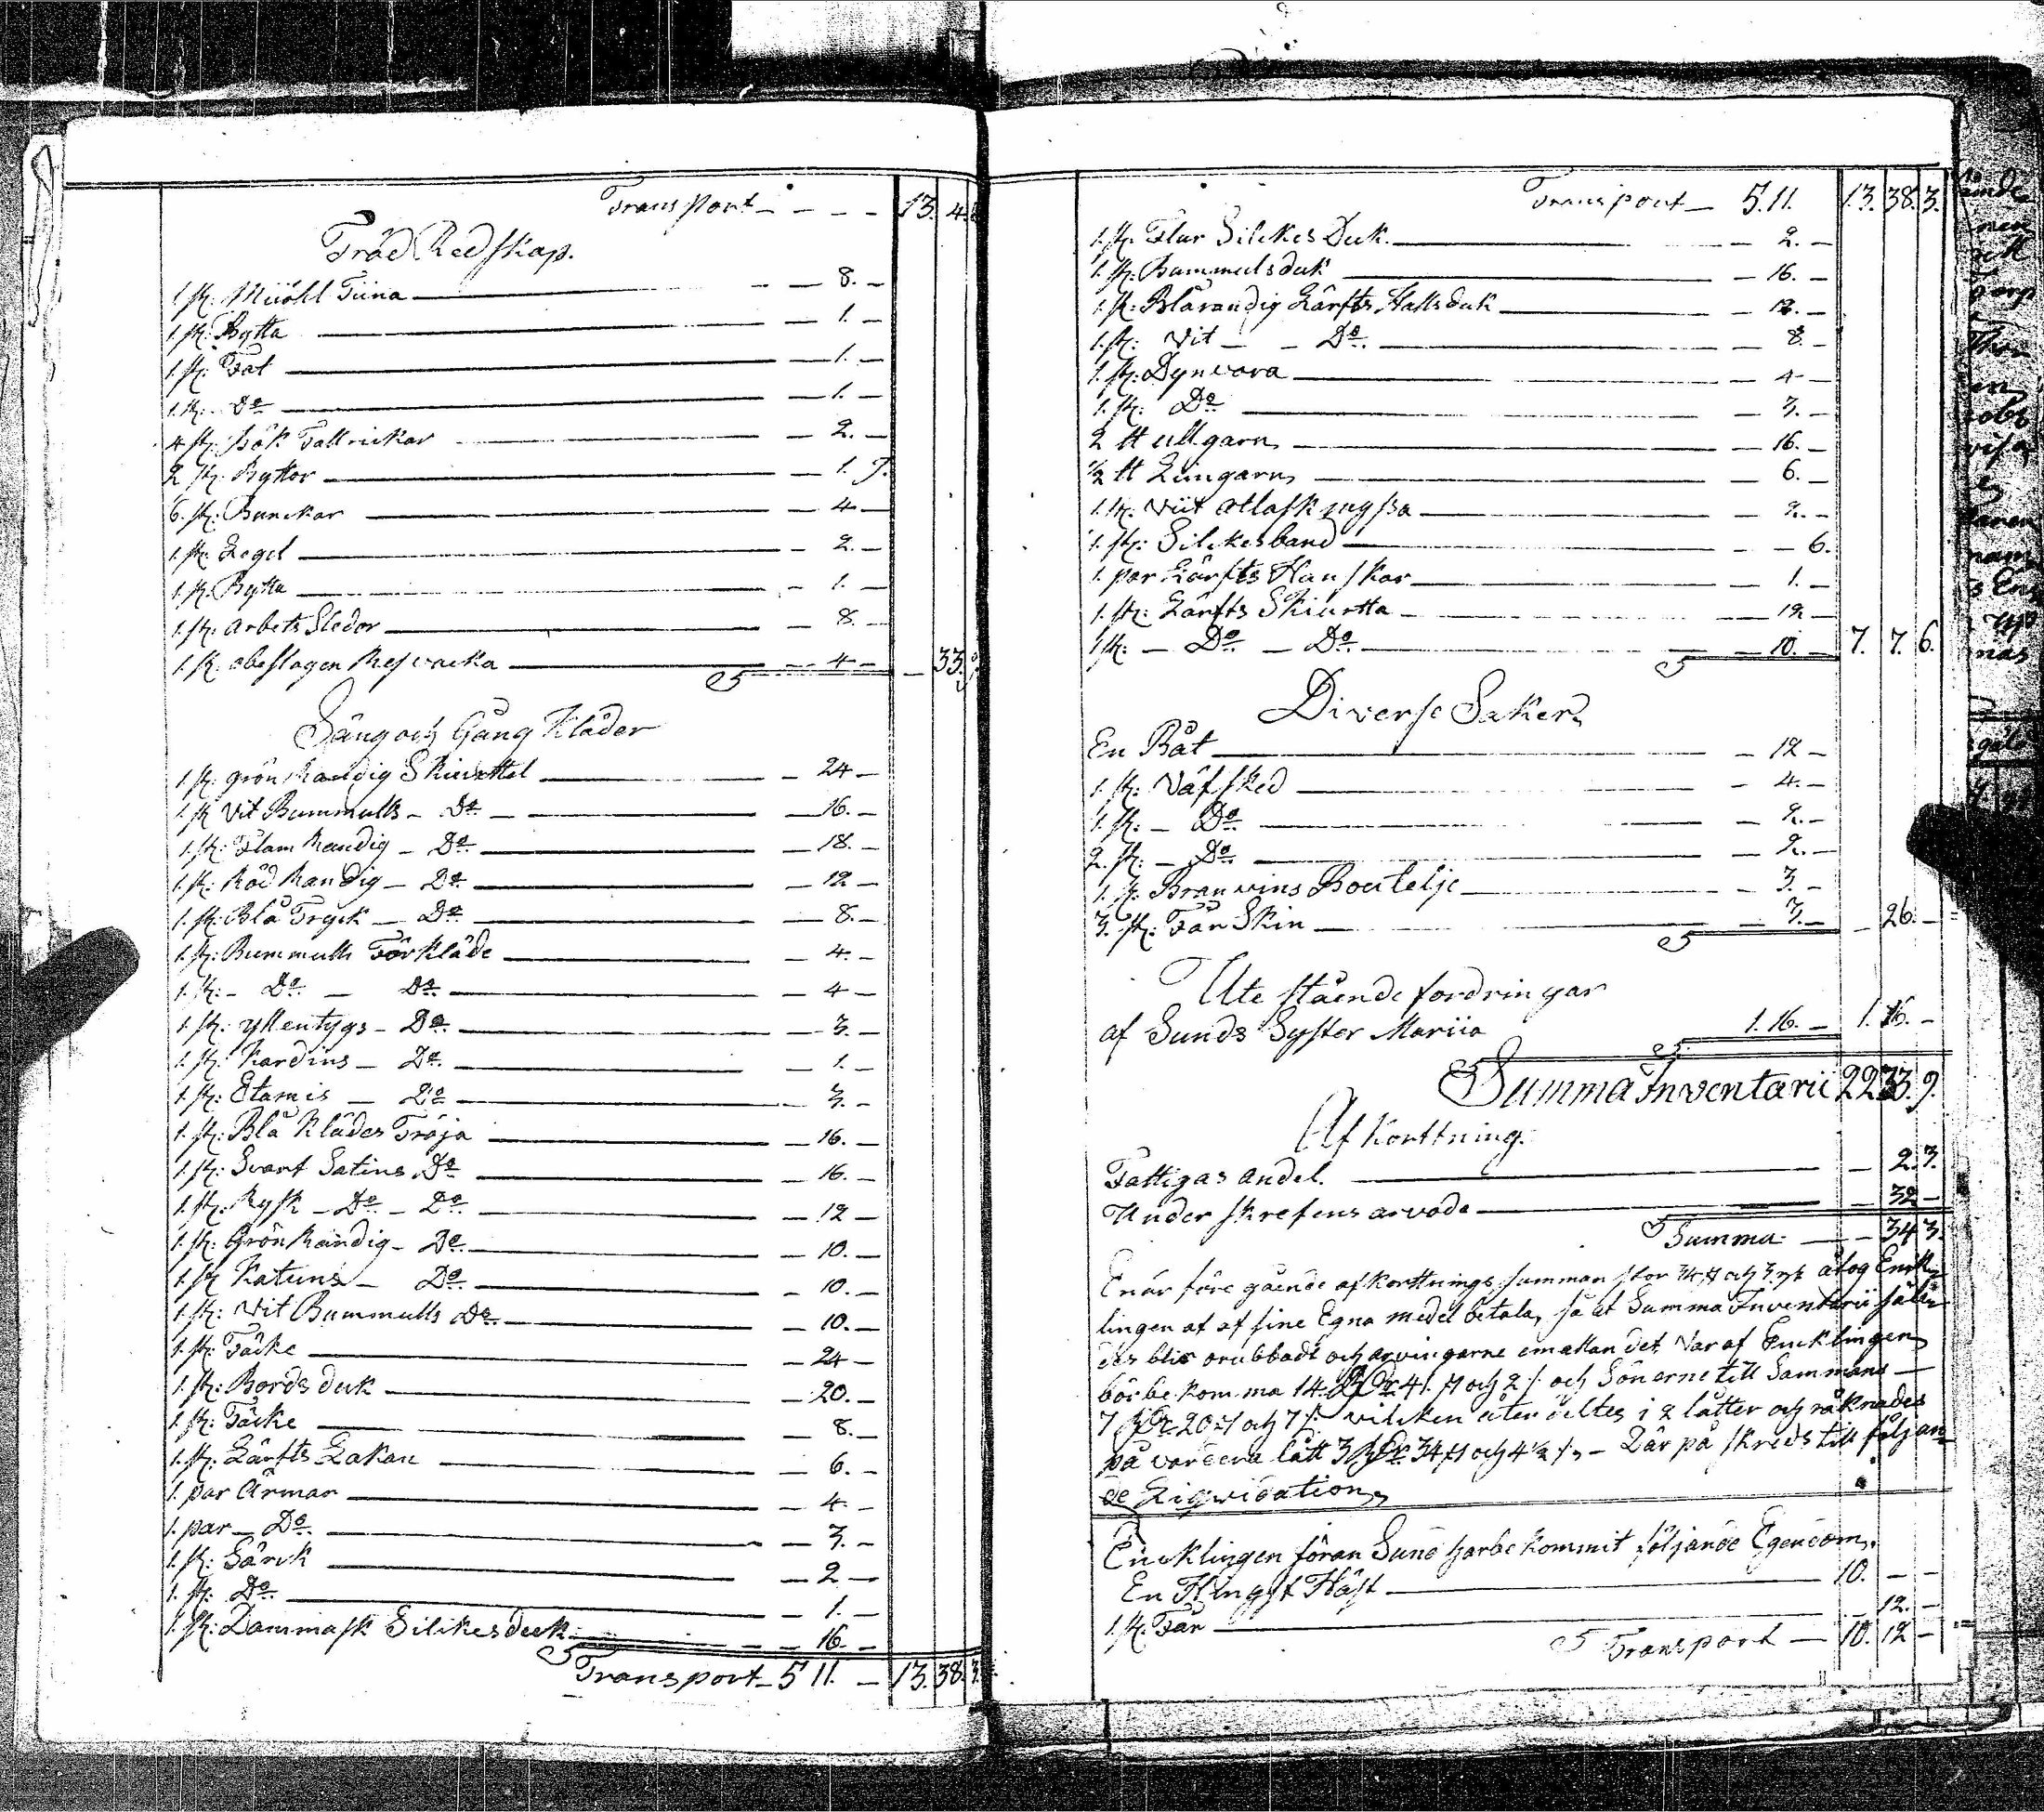 Transport - - - - 13. 4.
Träd Redskap.
1. st: Miöhl Tiina — 8. —
1. st: Bytta — 1. —
1. st: Fat — 1. —
1. st: Do — 1. —
4 st: bök Tallrickar — 2. —
2 st: Byttor — 1. 9.
6. st: Bunckar — 4 —
1. st: Legel — 2. —
1. st: Bytta — 1. —
1. st: arbets Sledor — 8. —
1. st: obeslagen — 4 — — 33.
Säng och Gång Kläder
1 st: grön Randig Skiurttel — 24 —
1. st Vit Bummulls - Do — 16. —
1. st: Flam Randig - Do — 18. —
1. st: Röd Randig - Do — 12 —
1. st: Blå Tryck - Do — 8. —
1. st: Bummulls Förkläde — 4. —
1. st: - Do — Do — 4 —
1. st: yllentygs - Do — 3. —
1. st: Kardins - Do — 1. —
1. st: Etamis — Do — 3. —
1. st: Blå Klädes Tröja — 16. —
1 st: Svart Satins Do — 16. —
1 st: Rysk - Do - Do — 12 —
1. st: Grön Randig - Do — 10. —
1. st Katuns - Do — 10. —
1 st: Vit Bummulls Do — 10. —
1 st: Täcke — 24 —
1 st: Bordsduk — 20. —
1 st: Täcke — 8. —
1. st: Lärfts Lakan — 6. —
1. par Ärmar — 4. —
1. par - Do — 3. —
1. st: Särck — 2 —
1. st: Do — 1. —
1. st: Dammask Silckesduk — 16. —
Transport - 5 11. — 13. 38. 3.
Transport — 5. 11. 13. 38. 3.
1. st: Flur Silckes Duk. — 2. —
1. st: Bummulsduk — 16. —
1. st: Blårandig Lärfts Halsduk — 12. —
1. st: Vit — Do — 8. —
1. st: Dynvara — 4 —
1. st: Do — 3. —
2 ℔ ullgarn — 16. —
½ ℔ Lingarn — 6. —
1. st: Viit Atlask myssa — 2. —
1. st: Silckesband — 6.
1. par Lärfts Hanskar — 1. —
1. st: Lärfts Skiurtta — 12 —
1 st: — Do — Do — 10. — 7. 7. 6.
Diverse Saker
En Båt — 12 —
1. st: Väfsked — 4. —
1. st: — Do — 2. —
2. st: — Do — 2. —
1. st. Branvins Boutelje — 3. —
3. st: Får Skin — 3. — — 26. —
Ute stående fordringar
af Sunds Syster Mariia — 1. 16. — 1. 16. —
Summa Inventarii 22 33. 9.
Afkorttning.
Fattigas andel. — 2. 3.
Under skrefens arvode — 32 —
Summa — 34 3.
Enär föregående afkorttnings summan stor 34 ß och 3 rst åtog Enck-
lingen at af sine Egna medel betala, så at Summa Inventarii såle-
des blir orubbadt och arvingarne emellan det Var af Encklingen
bör bekomma 14. Rdr 41. ß och 2 /. och Sönerne till Sammans —
7 Rdr 20: ß och 7 /: vilcken åter deltes i 2 låtter och räknades
på vardera lått 3 Rdr 34 ß och 4 ½ /. — Där på skreds till följan-
de Liqwidation
Encklingen Sund har bekommit följande Egendom.
En Hingst Häst — 10. — —
1. st: Får — 12. —
Transport — 10. 12 —